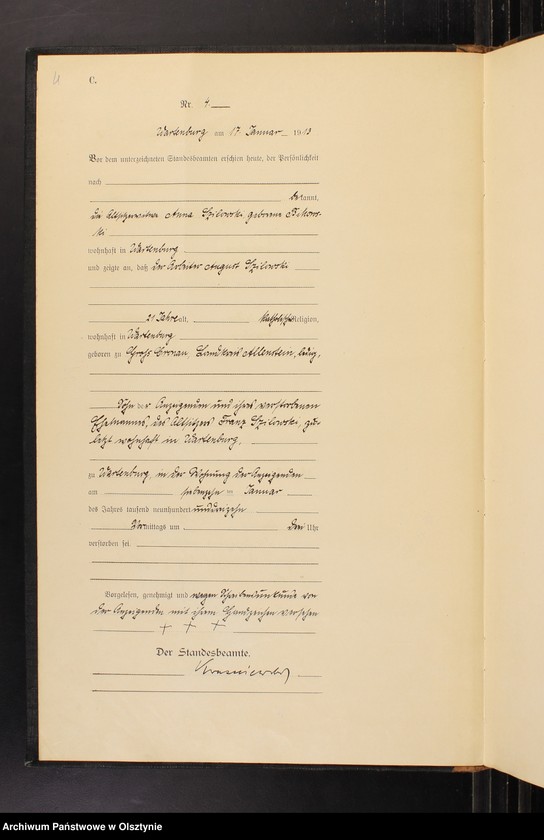 C.
Nr. 4
Wartenburg am 17 Januar 1913
Vor dem unterzeichneten Standesbeamten erschien heute, der Persönlichkeit
nach
bekannt,
die Altsitzerwitwe Anna Szilowski geborene
ski
wohnhaft in Wartenburg
und zeigte an, daß der Arbeiter August Szilowski
21 Jahre alt, katholischer Religion,
wohnhaft in Wartenburg
geboren zu Groß Cronau, Landkreis Allenstein, ledig,
Sohn der Anzeigenden und ihres verstorbenen
Ehemannes, des Altsitzers Franz Szilowski, zu-
letzt wohnhaft in Wartenburg,
zu Wartenburg, in der Wohnung der Anzeigenden
am siebenzehn ten Januar
des Jahres tausend neunhundert und
Vormittags um drei Uhr
verstorben sei.
Vorgelesen, genehmigt und wegen Schreibensunkunde von
der Anzeigenden mit ihrem Handzeichen versehen
+ + +
Der Standesbeamte.
Archiwum Państwowe w Olsztynie